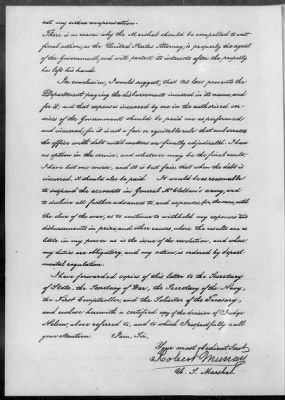 out my entire compensation.
There is no reason why the Marshal should be compelled to wit
final action, as the United States Attorney, is properly the agent
of the Government, and will protect its interests after the property
has left his hands.
In conclusion, I would suggest, that the law permits the
Department paying the disbursements incurred in its name, and
for it; and that expenses incurred by me in the authorized ser-
vices of the Government should be paid me as performed
and incurred; for it is not a fair or equitable rule that embarrasses
the officer with debt until matters are finally adjudicated. I have
no option in the service; and whatever may be the final results,
I have but one order, and it is but fair that when the debt is
incurred, it should also be paid. It would be as reasonable
to suspend the accounts in General McClellan's army, and
to decline all further advances to, and expenses for the same, until
the close of the war, as to continue to withhold my expenses and
disbursements in prize, and other causes, where the results are as
little in my power as is the issue of the revolution, and where
my duties are obligatory, and my action, is ordered by depart-
mental regulation.
I have forwarded copies of this letter to the Secretary
of State, the Secretary of War, the Secretary of the Navy,
the First Comptroller, and the Solicitor of the Treasury,
and enclose herewith a certified copy of the decision of Judge
Nelson, above referred to, and to which I respectfully call
your attention. I am, Sir,
Your most obedient Servt
Robert Murray
U. S. Marshal